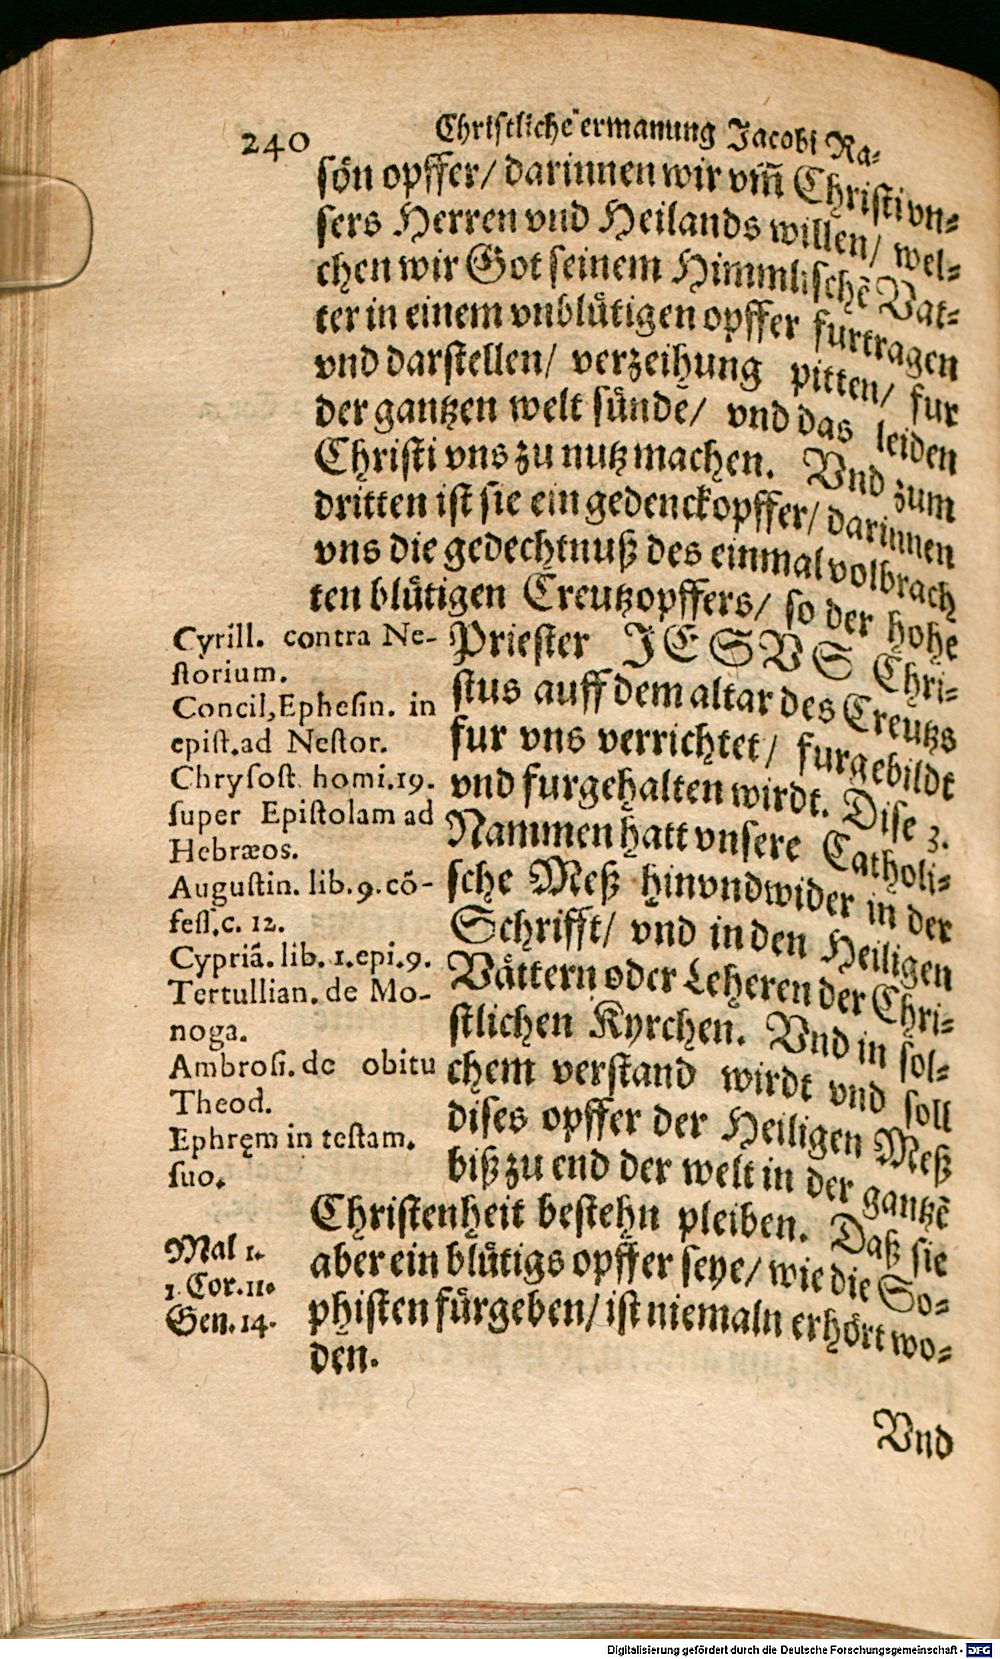 240
Christliche ermanung Jacobi Ra-
sön opffer/ darinnen wir vm̃ Christi vn-
sers Herren vnd Heilands willen/ wel-
chen wir Got seinem Himmlischẽ Vat-
ter in einem vnblůtigen opffer furtragen
vnd darstellen/ verzeihung pitten/ fur
der gantzen welt sündẽ/ vnd das leiden
Christi vns zu nutz machen. Vnd zum
dritten ist sie ein gedenckopffer/ darinnen
vns die gedechtnuß des einmal volbrach
ten blůtigen Creutzopffers/ so der hohe
Priester JESVS Chri-
stus auff dem altar des Creutzs
fur vns verrichtet/ furgebildt
vnd furgehalten wirdt. Dise 3.
Nammen hatt vnsere Catholi-
sche Meß hin vnd wider in der
Schrifft/ vnd in den Heiligen
Våttern oder Leheren der Chri-
stlichen Kyrchen. Vnd in sol-
chem verstand wirdt vnd soll
dises opffer der Heiligen Meß
biß zu end der welt in der gantzẽ
Christenheit bestehn pleiben. Daß sie
aber ein blůtigs opffer seye/ wie die So-
phisten fürgeben/ ist niemaln erhört wo-
den.
Cyrill. contra Ne-
storium.
Concil, Ephesin. in
epist. ad Nestor.
Chrysost. homi. 19.
super Epistolam ad
Hebræos.
Augustin. lib. 9. cõ-
fess. c. 12.
Cypriã. lib. 1. epi. 9.
Tertullian. de Mo-
noga.
Ambrosi. de obitu
Theod.
Ephręm in testam.
suo.
Mal 1.
1. Cor. 11.
Gen. 14.
Vnd
Digitalisierung gefördert durch die Deutsche Forschungsgemeinschaft - DFG